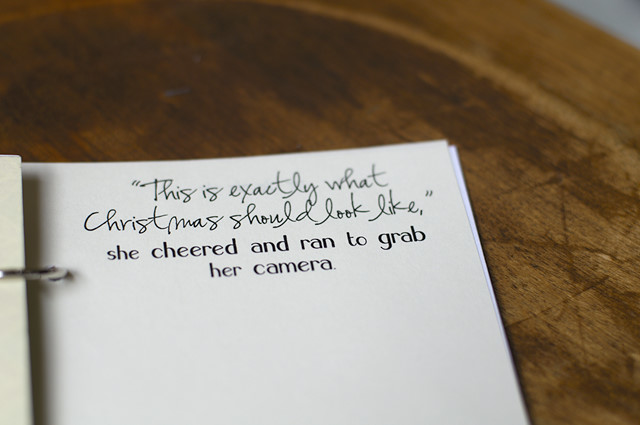 “This is exactly what
Christmas should look like,”
she cheered and ran to grab
her camera.